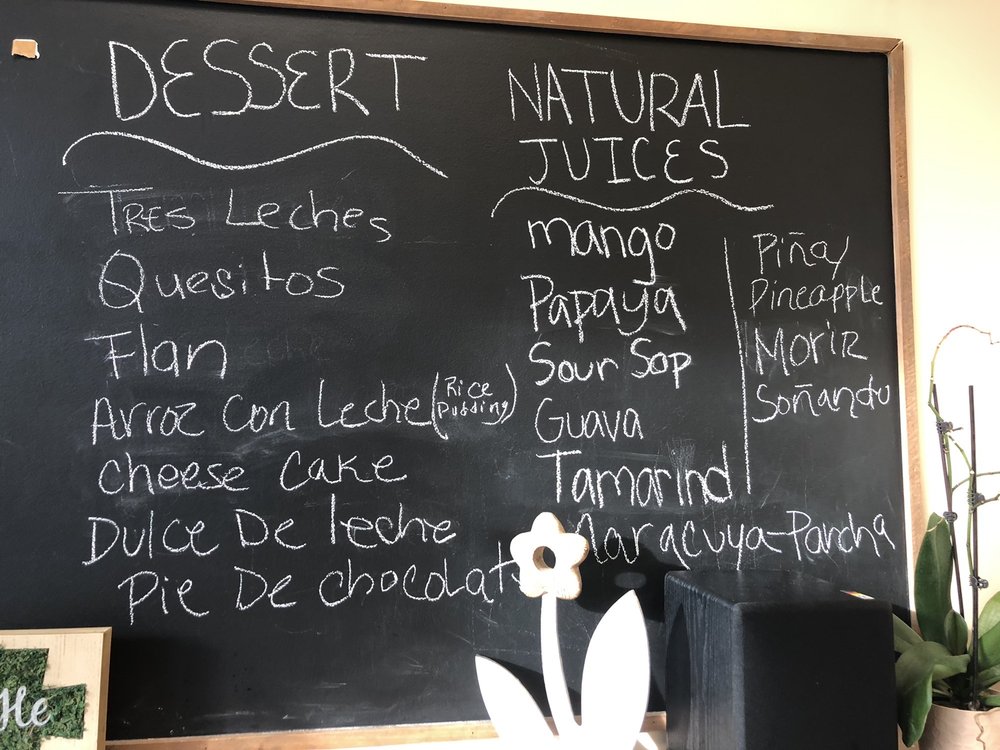 DESSERT
Tres Leches
Quesitos
Flan
Arroz Con Leche (Rice Pudding)
Cheese Cake
Dulce De leche
Pie De chocolat
NATURAL
JUICES
mango
Papaya
Sour Sop
Guava
Tamarind
Maracuya-Parcha
Piña/
Pineapple
Morir
Soñando
He